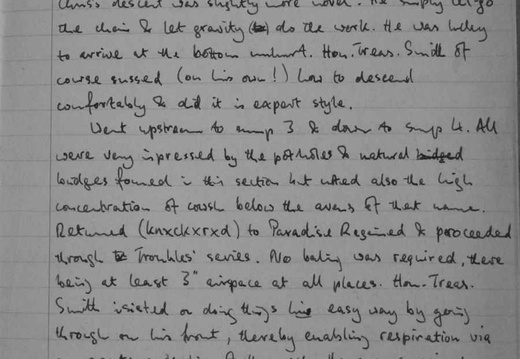 Chris's descent was slightly more novel. He simply let go
the chain & let gravity (to) do the work. He was lucky
to arrive at the bottom unhurt. Hon. Treas. Smith of
course sussed (on his own!) how to descend
comfortably & did it in expert style.
Went upstream to sump 3 & down to sump 4. All
were very impressed by the potholes & natural bridged
bridges formed in this section but noted also the high
concentration of cowsh below the avens of that name.
Returned (knxckxrxd) to Paradise Regained & proceeded
through Troubles' series. No baling was required, there
being at least 3" airspace at all places. Hon. Treas.
Smith insisted on doing things easy way by going
through on his front, thereby enabling respiration via